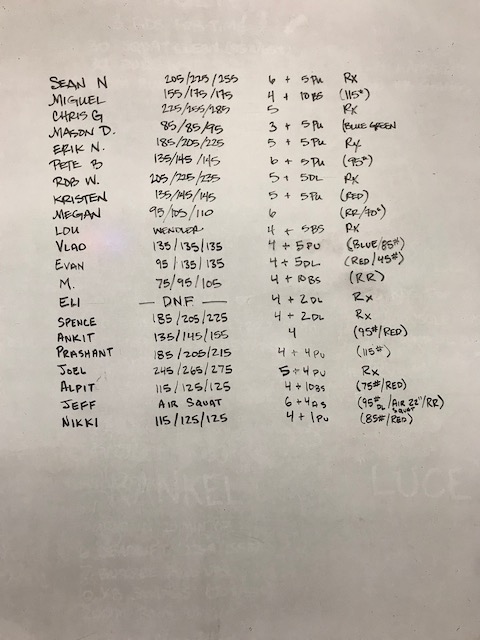 SEAN N 205/225/255 6 + 5PU RX
MIGUEL 155/175/175 4 + 10BS (115#)
CHRIS G 225/255/285 5 RX
MASON D. 85/85/95 3 + 5PU (BLUE GREEN
ERIK N. 185/205/225 5 + 5PU RX
PETE B 135/145/145 6 + 5PU (95#)
ROB W. 205/225/235 5 + 5DL RX
KRISTEN 135/145/145 5 + 5PU (RED)
MEGAN 95/105/110 6 (RR/70#)
LOU WENDLER 4 + 5BS RX
VLAD 135/135/135 4 + 5PU (BLUE/85#)
EVAN 95/135/135 4 + 5DL (RED/45#)
M. 75/95/105 4 + 10BS (RR)
ELI — DNF — 4 + 2DL RX
SPENCE 185/205/225 4 + 2DL RX
ANKIT 135/145/155 4 (95#/RED)
PRASHANT 185/205/215 4 + 4PU (115#)
JOEL 245/265/275 5 + 4PU RX
ALPIT 115/125/125 4 + 10BS (75#/RED)
JEFF AIR SQUAT 6 + 4AS (95# DL/AIR SQUAT 22"/RR)
NIKKI 115/125/125 4 + 1PU (85#/RED)
KANKEL LUCE